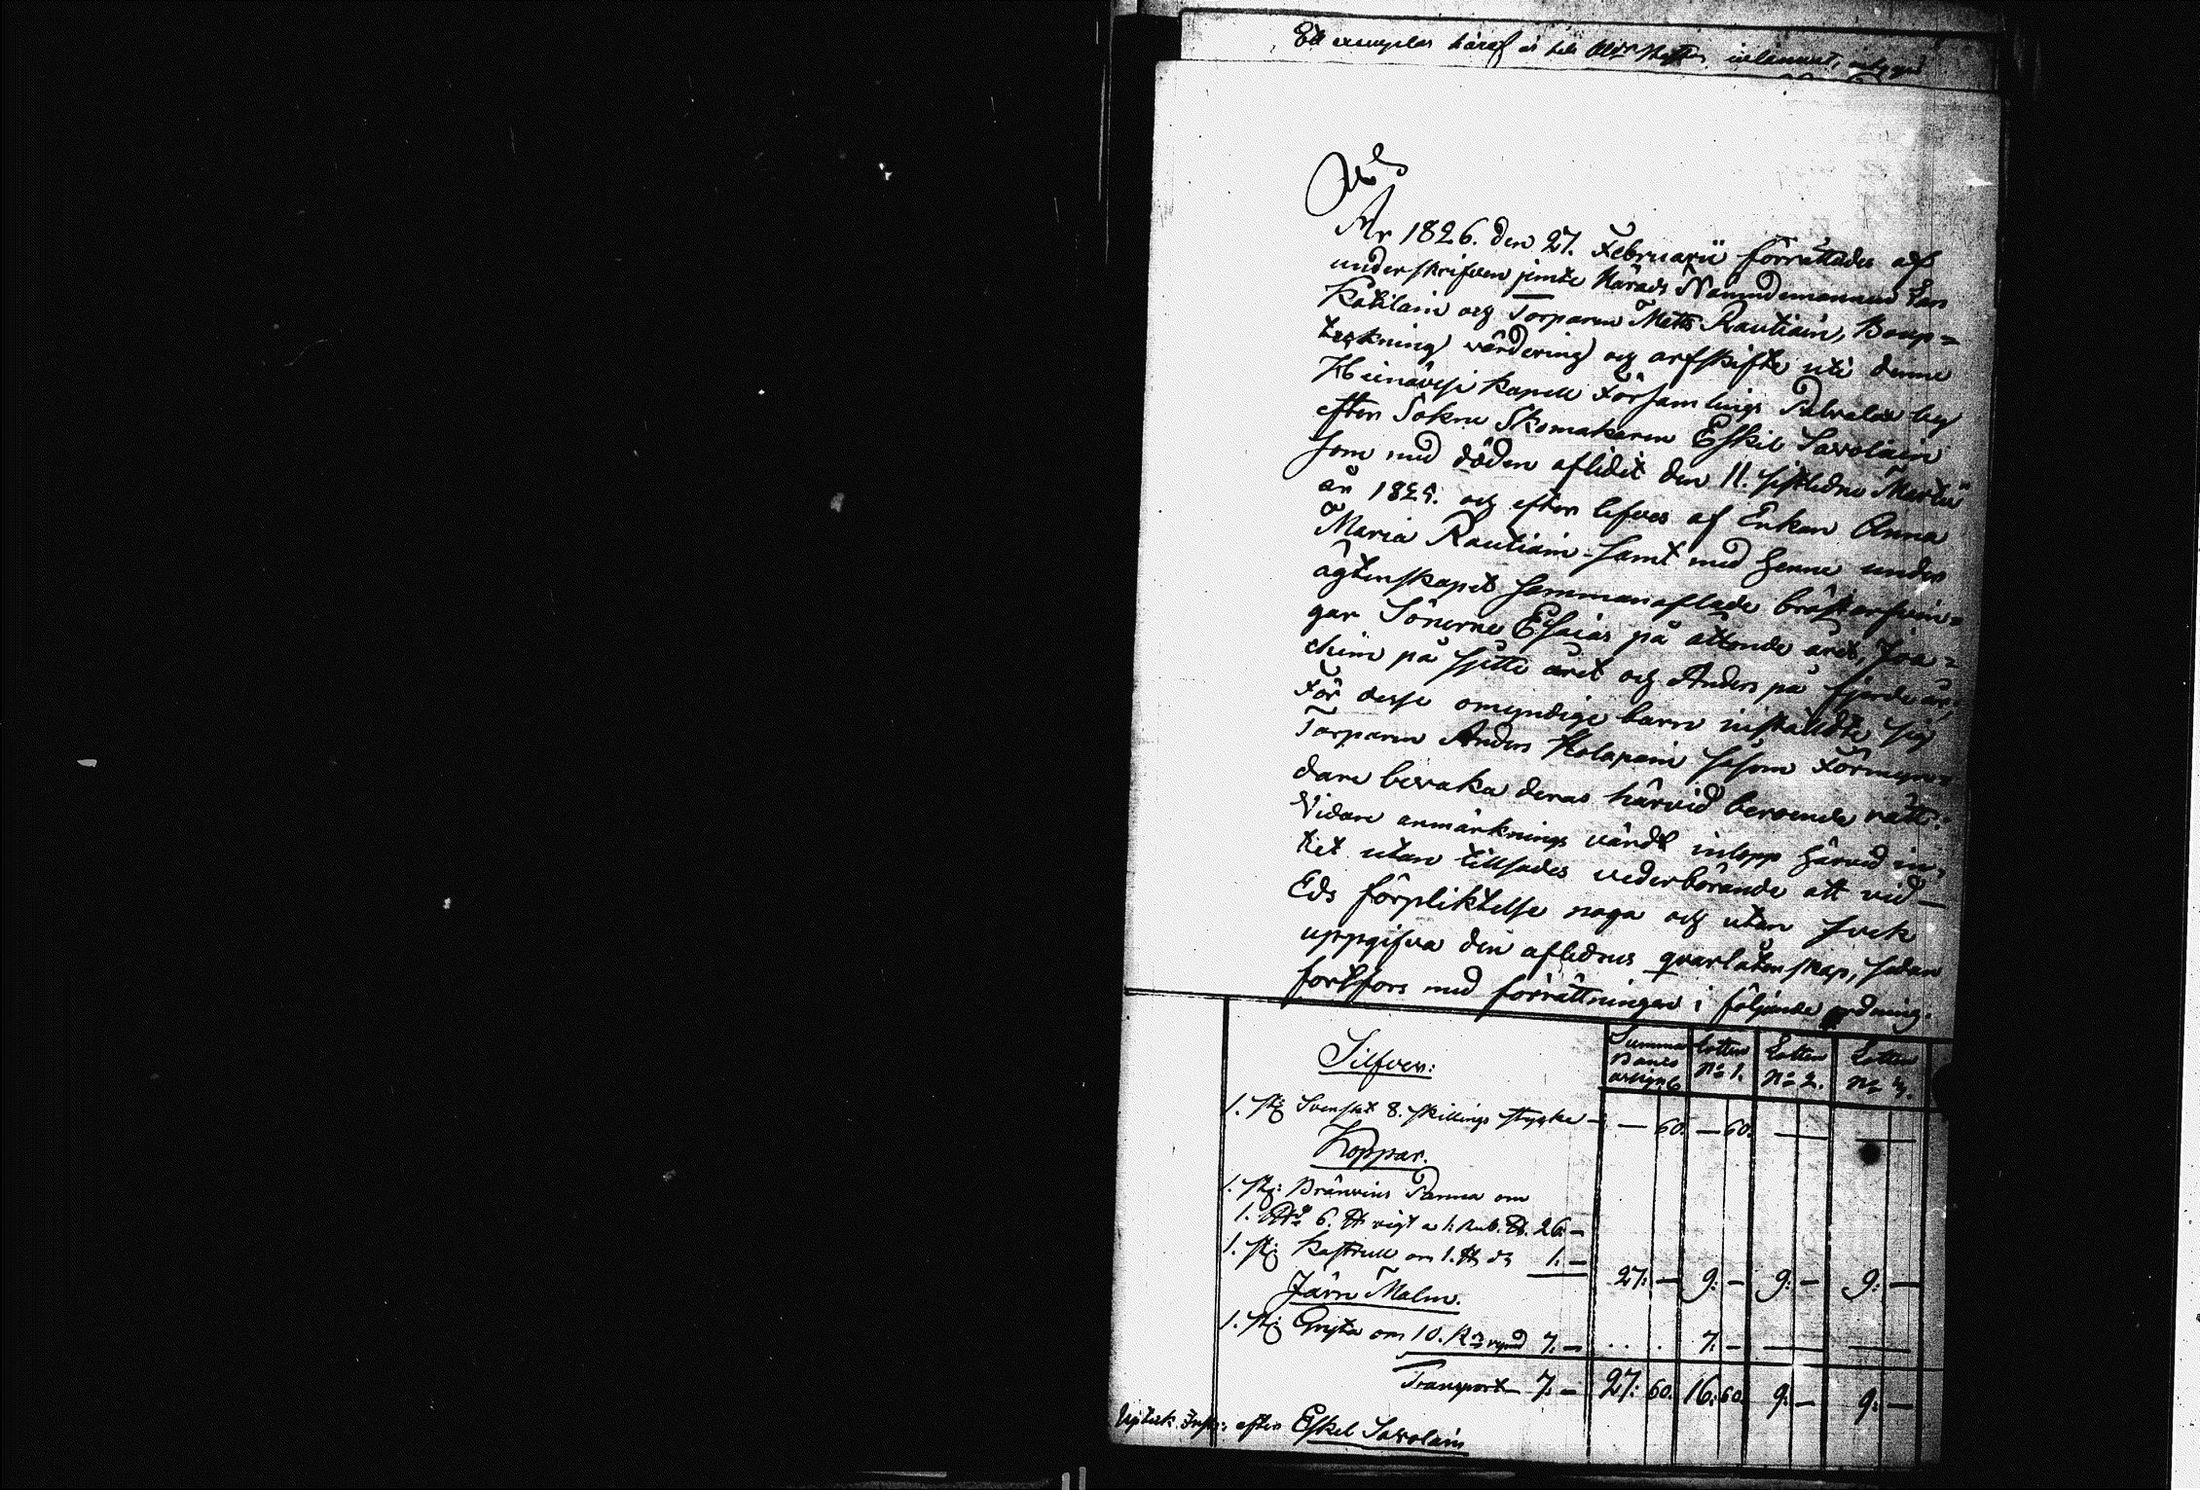 Ett exemplar häraf är till inlämnat, intygar
År 1826. den 27. Februarii förrättades af
underskrifven jemte Härads Nämndemannen Lars
Katilain och Torparen Matts Rautiain, Boup=
teckning värdering och arfskifte uti denne
Heinävesi Kapell Församlings Palvalax by
efter Sokne Skomakaren Eskil Savolain
som med döden aflidit den 11. sistledne Martii
år 1825. och efter lefves af Enkan Anna
Maria Rautiain samt med henne under
ägtenskapet sammanaflade bröstarfvin=
gar Sönerne Esaias på åttonde året, Joa=
chim på sjette året och Anders på fjerde år,
För desse omyndige barn inställdte sig
Torparen Anders Kolapain såsom Förmyn=
dare bevaka deras härvid beroende rätt.
Vidare anmärknings värdt inlopp härvid in=
tet utan tillsades vederbörande att vid
Eds förpliktelse noga och utan svek
uppgifva den aflidnes qvarlåtenskap, sedan
fortfors med förrättningen i följande ordning.
Silfver: Summa Banco assign. Lotten No 1. Lotten No 2. Lotten No 3.
1. st: Svenskt 8. skillings stycke — — 60. — 60. — —
Koppar.
1. st: Bränvins Panna om
1. L℔ 6. ℔ vigt a 1. Rub. ℔. 26. —
1. st: Kastrull om 1. ℔ d: 1. — 27: — 9: — 9: — 9: —
Järn Malm.
1. st: Gryta om 10. K:rs rymd 7. — . . . 7. — — —
Transport 7. — 27: 60. 16: 60. 9: — 9: —
efter Eskel Savolain